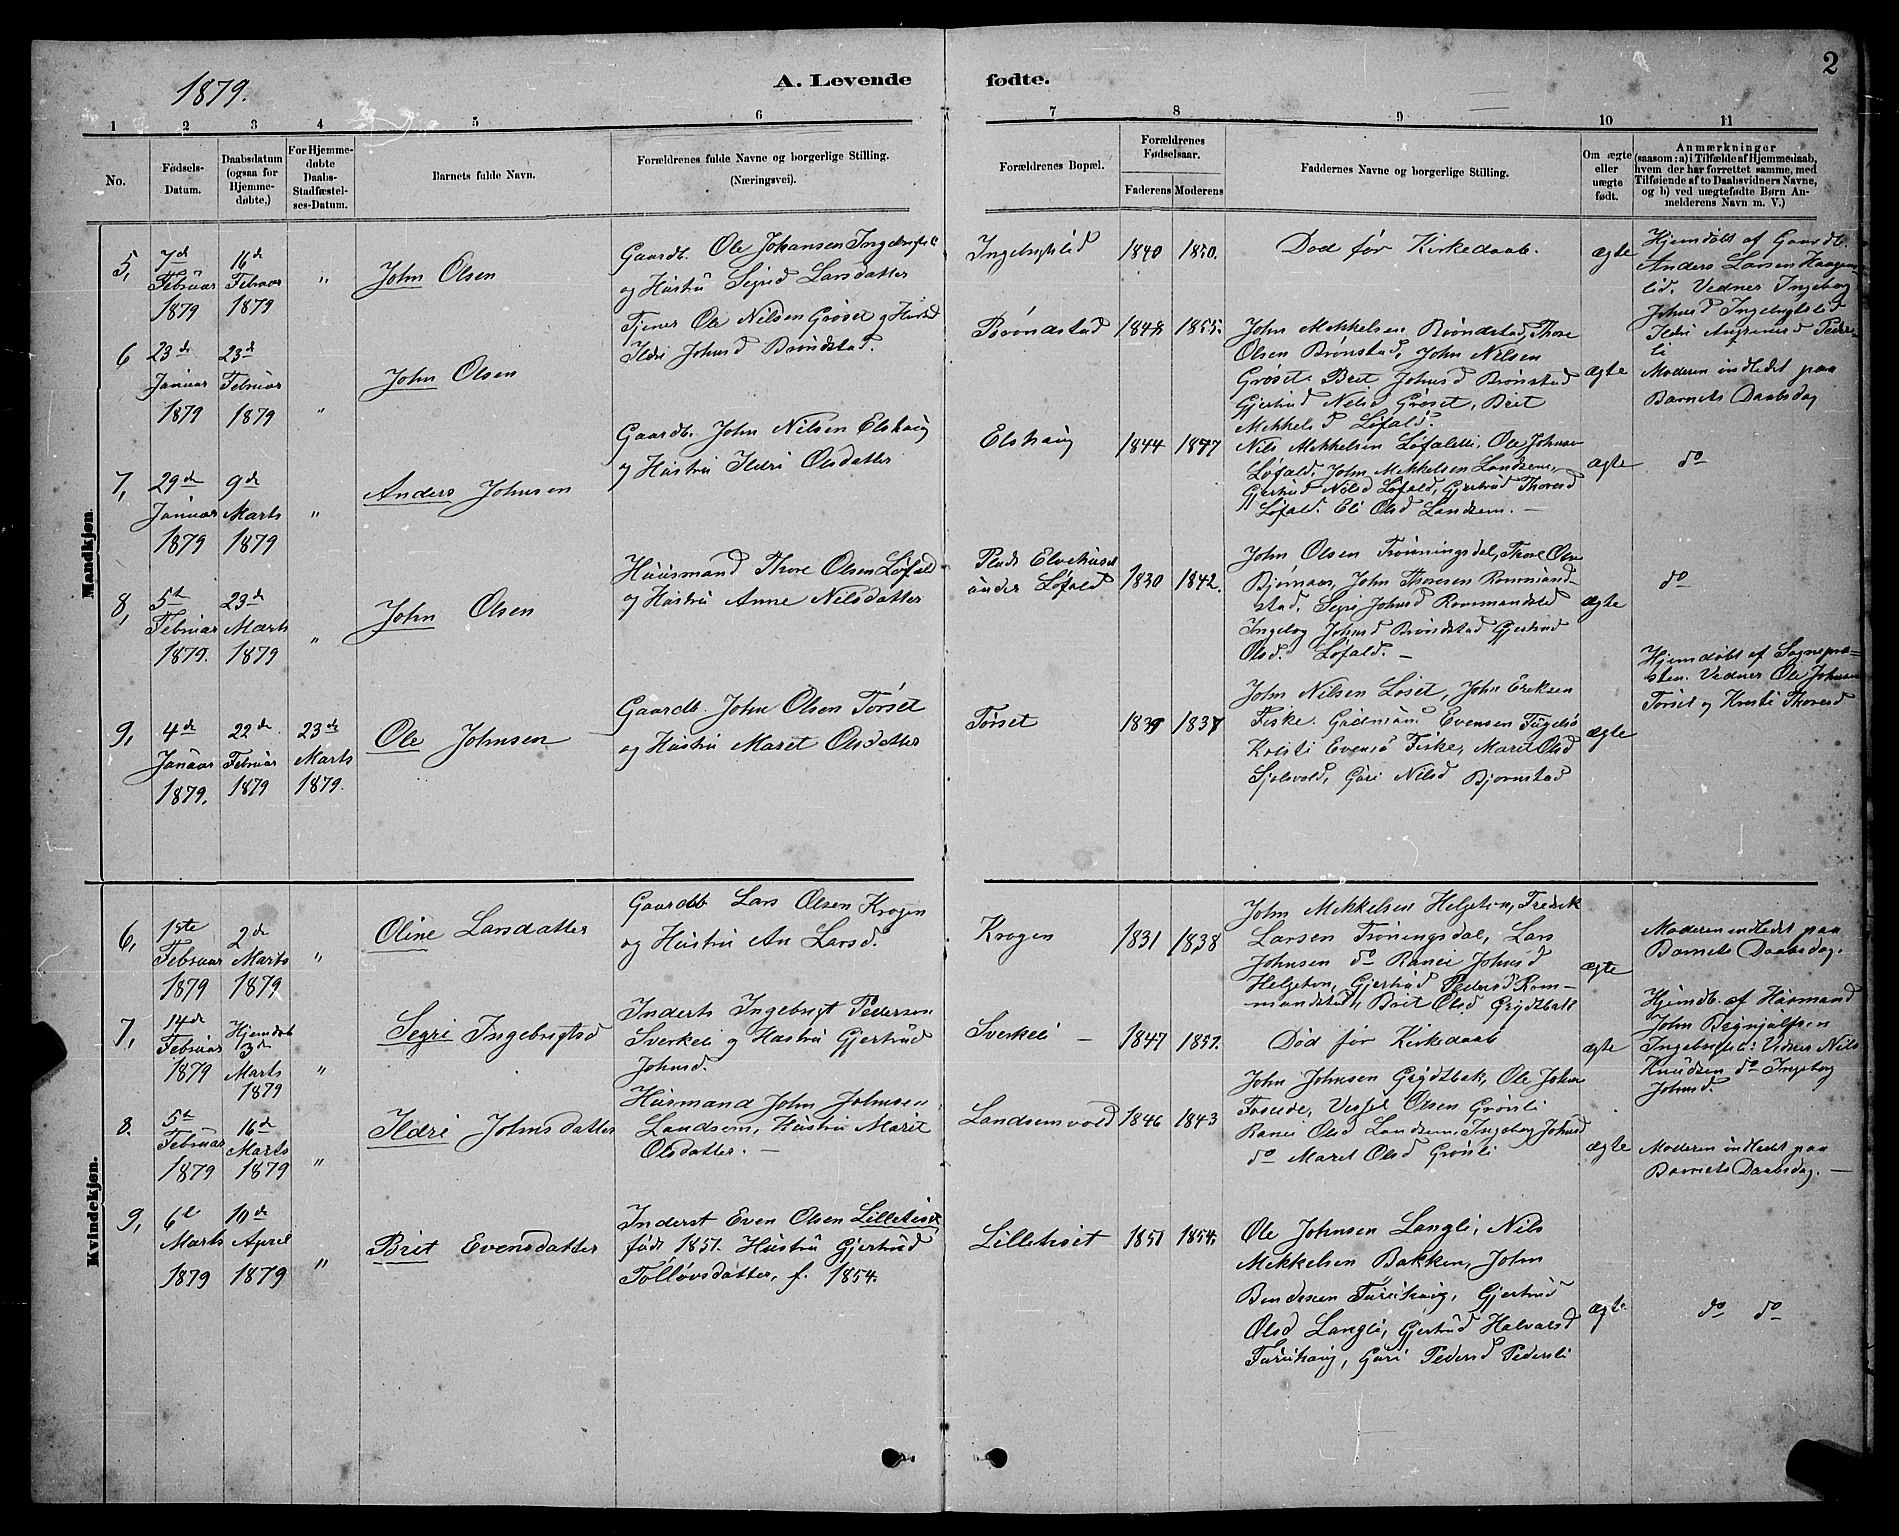 1879.
A. Levende fødte.
2
1 2 3 4 5 6 7 8 9 10 11
No.
Fødsels-Datum.
Daabsdatum (ogsaa for Hjemme-døbte.)
For Hjemme-døbte Daabs-Stadfæstel-ses-Datum.
Barnets fulde Navn.
Forældrenes fulde Navne og borgerlige Stilling.
(Næringsvei).
Forældrenes Bopæl.
Forældrenes Fødselsaar.
Faderens Moderens
Faddernes Navne og borgerlige Stilling.
Om ægte eller uægte født.
Anmærkninger
(saasom: a) i Tilfælde af Hjemmedaab,
hvem der har forrettet samme, med
Tilføiende af to Daabsvidners Navne,
og b) ved uægtefødte Børn An-
melderens Navn m. V.)
Mandkjøn.
5, 7de Februar 1879
16de Februar 1879
"
John Olsen
Gaardb. Ole Johansen Ingebrigtsli
og Hustru Sigrid Larsdatter
Ingebrigtslid
1840 1850.
Død før Kirkedaab.
ægte
Hjemdøbt af Gaardb.
Anders Larsen Haagens-
lid. Vidner Ingebor
Johnsd Ingebrigtslid
Ildri Peders-
li
6 23de Januar 1879
23de Februar 1879
"
John Olsen
Tjener Ole Nilsen Grøset og Hustru
Ildri Johnsd Brøndstad.
Brøndstad
1848 1855.
John Mekkelsen Brøndstad, Thore
Olsen Brønstad, John Nilsen
Grøset. Brit Johnsd Brønstad
Gjertrud Nilsd Grøset, Brit
Mekkelsd Løfald.
ægte
Moderen indledet paa
Barnets Daabsdag
7, 29de Januar 1879
9de Marts 1879
"
Anders Johnsen
Gaardb. John Nilsen Elshaug
og Hustru Ildri Olsdatter
Elshaug
1844 1847
Nils Mekkelsen Løfaldli, Ole Johnsen
Løfald, John Mekkelsen Landsem,
Gjertrud Nilsd Løfald, Gjertrud Thoresd
Løfald. Eli Olsd Landsem. –
ægte
do
8, 5te Februar 1879.
23de Marts 1879
"
John Olsen
Huusmand Thore Olsen Løfald
og Hustru Anne Nilsdatter
Plads Elvehuset
under Løfald
1830 1842.
John Olsen Trønningsdal, Thore Olsen
Bjørnaas, John Thoresen Rommund-
stad, Sigri Johnsd Rommundstad
Ingebog Johnsd Brøndstad Gjertrud
Olsd. Løfald. –
ægte
do
9, 4de Januar 1879.
22de Februar 1879
23de Marts 1879.
Ole Johnsen
Gaardb. John Olsen Tørset
og Hustru Maret Olsdatter
Tørset
1839 1837
John Nilsen Løset, John Eriksen
Fiske. Gudmund Evensen
Kristi Evensd Fiske, Marit Olsd
Sjølsvold, Guri Nilsd Bjørnstad
ægte
Hjemdøbt af Sognepræ-
sten. Vidner Ole Johnsen
Tørset og Kristi Thoresd
Kvindekjøn.
6, 1ste Februar 1879
2de Marts 1879
"
Oline Larsdatter
Gaardb Lars Olsen Krogen
og Hustru An Larsd.
Krogen
1831 1838
John Mekkelsen Helgeton, Fredrik
Larsen Trøningsdal, Lars
Johnsen do Ranei Johnsd
Helgeton, Gjertrud Pedersd Rom-
mundstad, Brit Olsd Grydtbak
ægte
Moderen indledet paa
Barnets Daabsdag.
7, 14de Februar 1879
Hjemdøb 3de Marts 1879
"
Segri Ingebrigtsd
Inderst Ingebrigt Pedersen
Sverkeli og Hustru Gjertrud
Johnsd.
Sverkeli –
1847 1851.
Død før Kirkedaab
ægte
Hjemdb. af Husmand
John Brynjulfsen
Ingebrigtsli: Vidner Nils
Knudsen do Ingebog
Johnsd.
8. 5te Februar 1879
16de Marts 1879
"
Ildri Johnsdatter
Husmand John Johnsen
Landsem, Hustru Marit
Olsdatter. –
Landsemvold
1846 1843
John Johnsen Grydtbak, Ole Johnsen
Fosseide, Vessel Olsen Grønli
Ranei Olsd Landsem, Ingebog Johnsd
do Maret Olsd Grønli
ægte
Moderen indledet paa
Barnets Daabsdag. –
9, 6te Marts 1879
10de April 1879
"
Brit Evensdatter
Inderst Even Olsen Lillehiset
født 1851. Hustru Gjertrud
Tølløvsdatter, f. 1854.
Lillehiset
1851 1854.
Ole Johnsen Langli, Nils
Mekkelsen Bakken, John
Bendixen Furuhaug, Gjertrud
Olsd Langli, Gjertrud Halvorsd
Furuhaug, Guri Pedersd Pedersli
ægte
do do